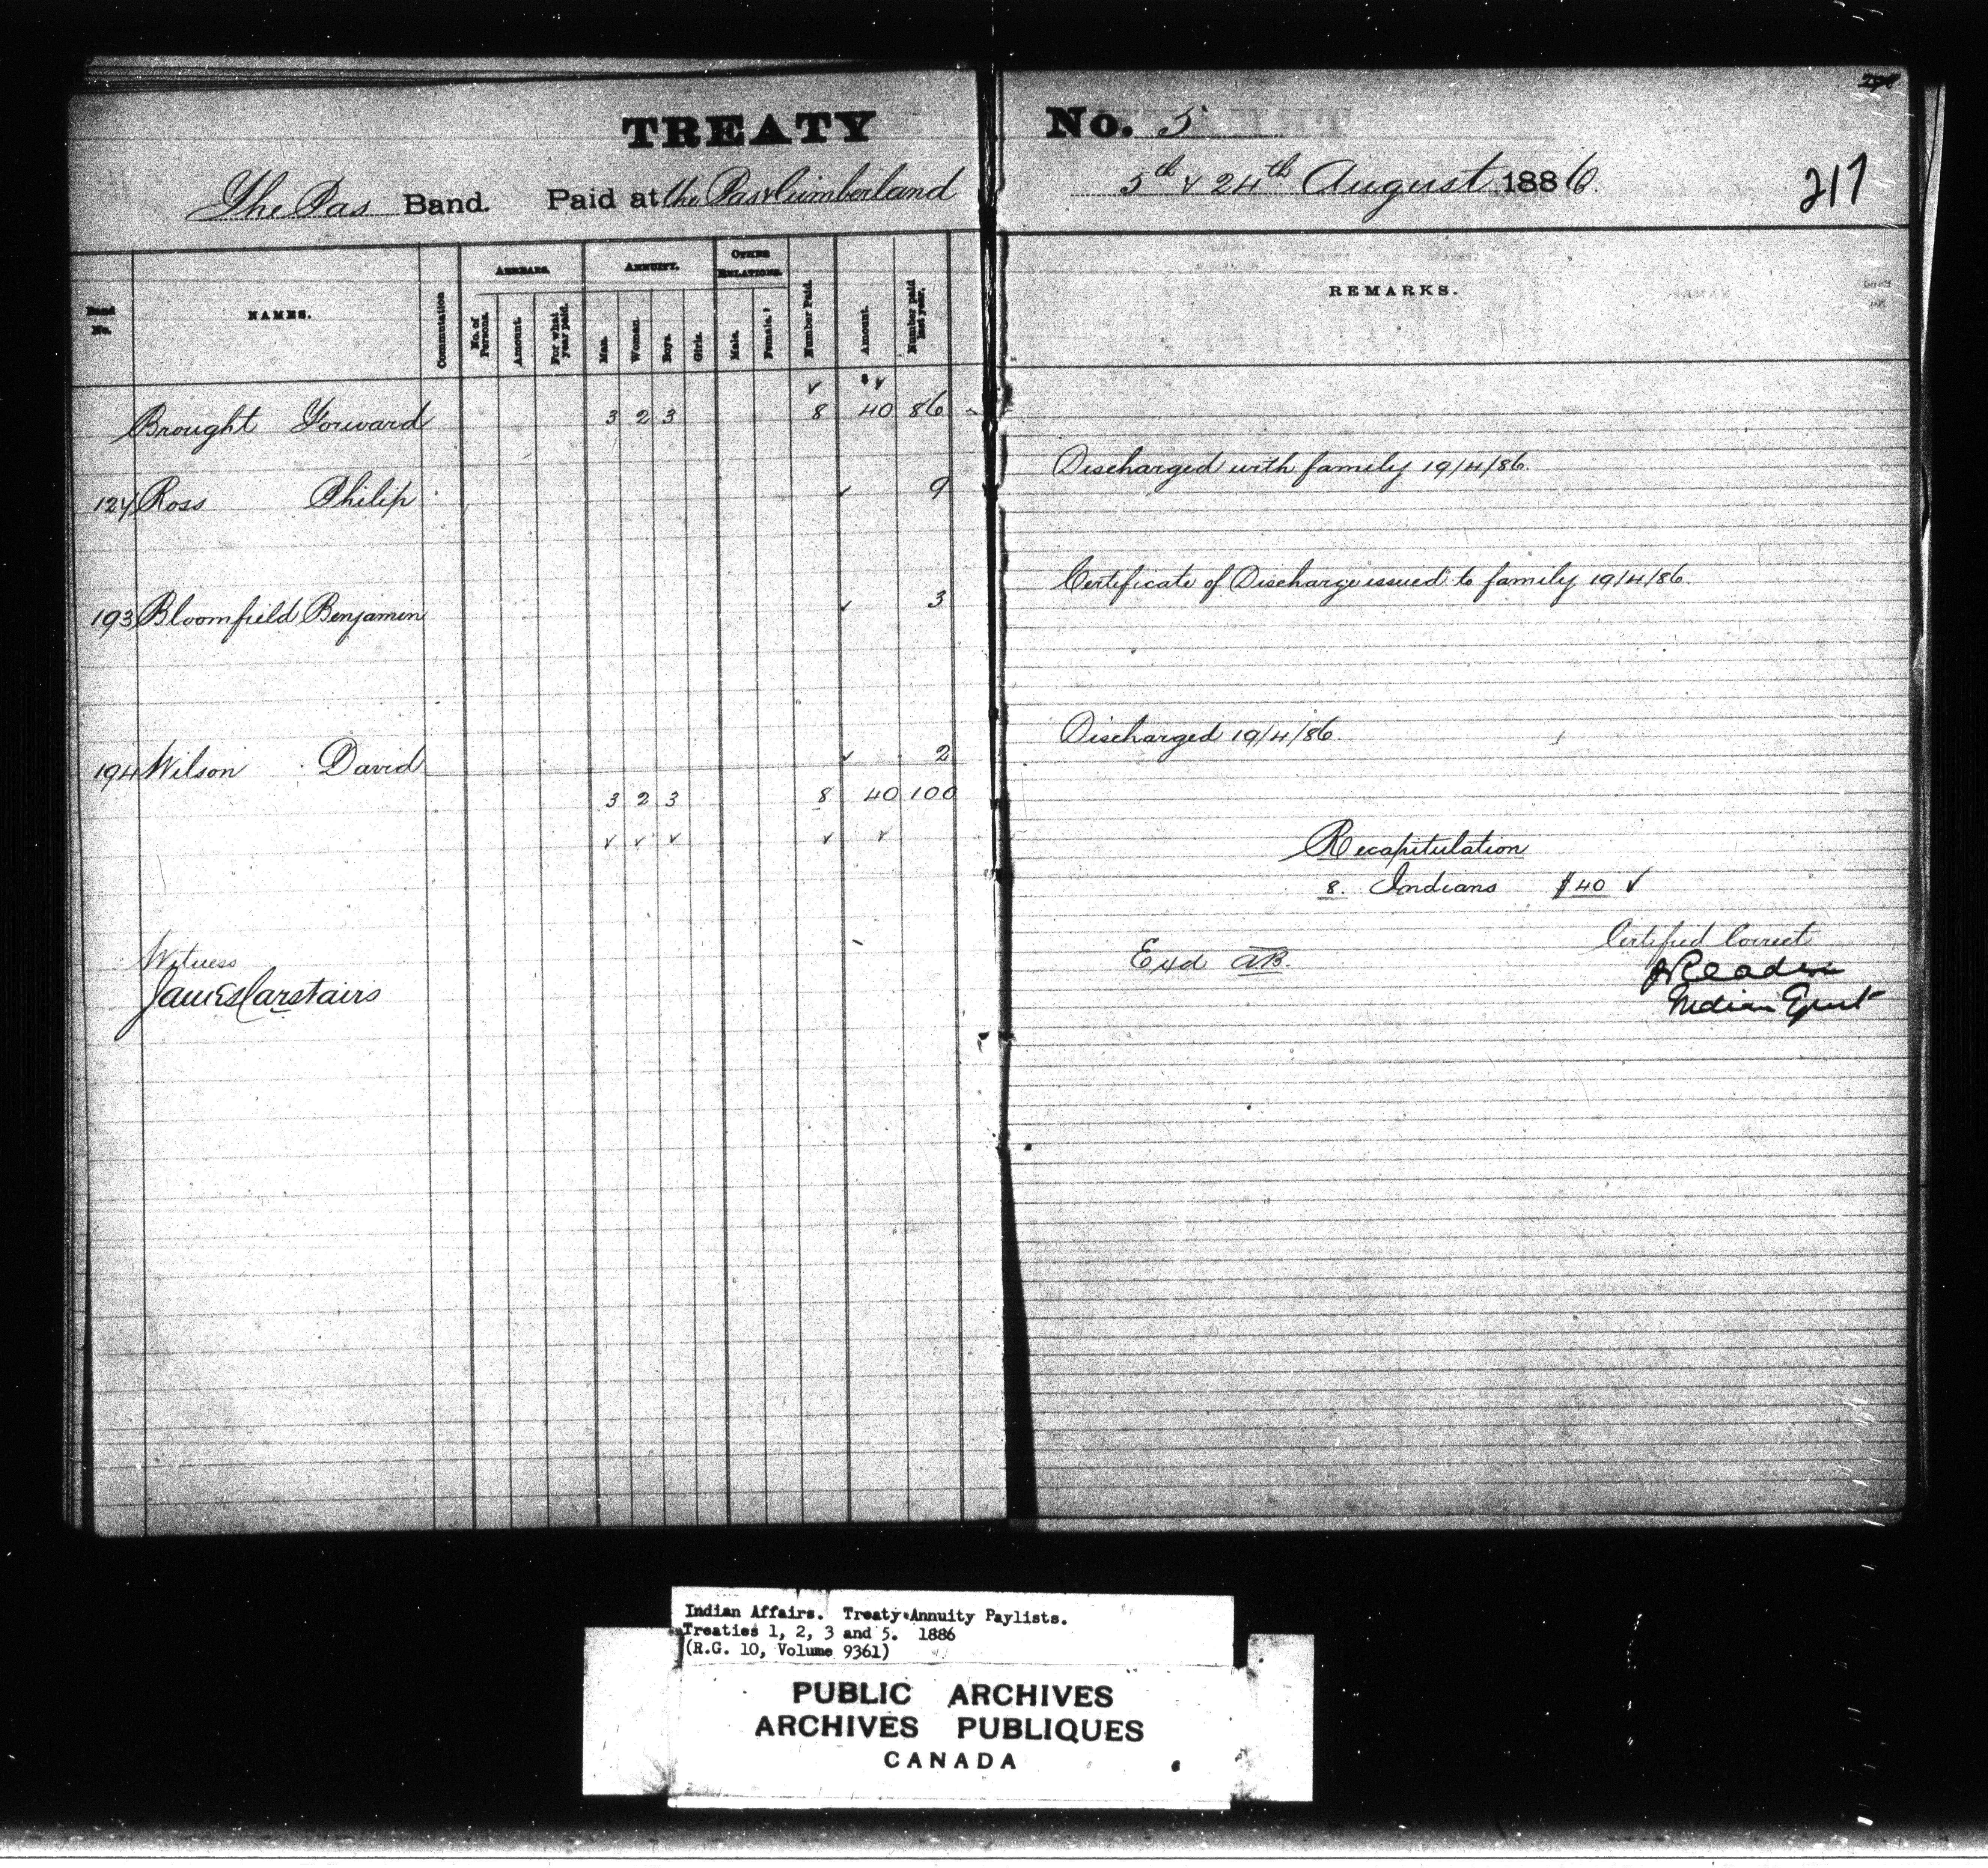 TREATY No. 5
The Pas Band. Paid at the Pas & Cumberland 5th & 24th August 1886.
217
Band No.
NAMES.
Commutation
ARREARS.
No. of Persons.
Amount.
For what year paid.
ANNUITY.
Man.
Woman.
Boys.
Girls.
OTHER RELATIONS.
Male.
Female.
Number Paid.
Amount.
Number paid last year.
REMARKS.
Brought Forward 3 2 3 8 40 86
124 Ross Philip 9 Discharged with family 19/4/86.
193 Bloomfield Benjamin 3 Certificate of Discharge issued to family 19/4/86.
194 Wilson David 2 Discharged 19/4/86
3 2 3 8 40 100
Recapitulation
8. Indians $40 ✓
Witness
James Carstairs
Exd AB.
Certified Correct
J Reader
Indian Agent
Indian Affairs. Treaty Annuity Paylists.
Treaties 1, 2, 3 and 5. 1886
(R.G. 10, Volume 9361)
PUBLIC ARCHIVES
ARCHIVES PUBLIQUES
CANADA